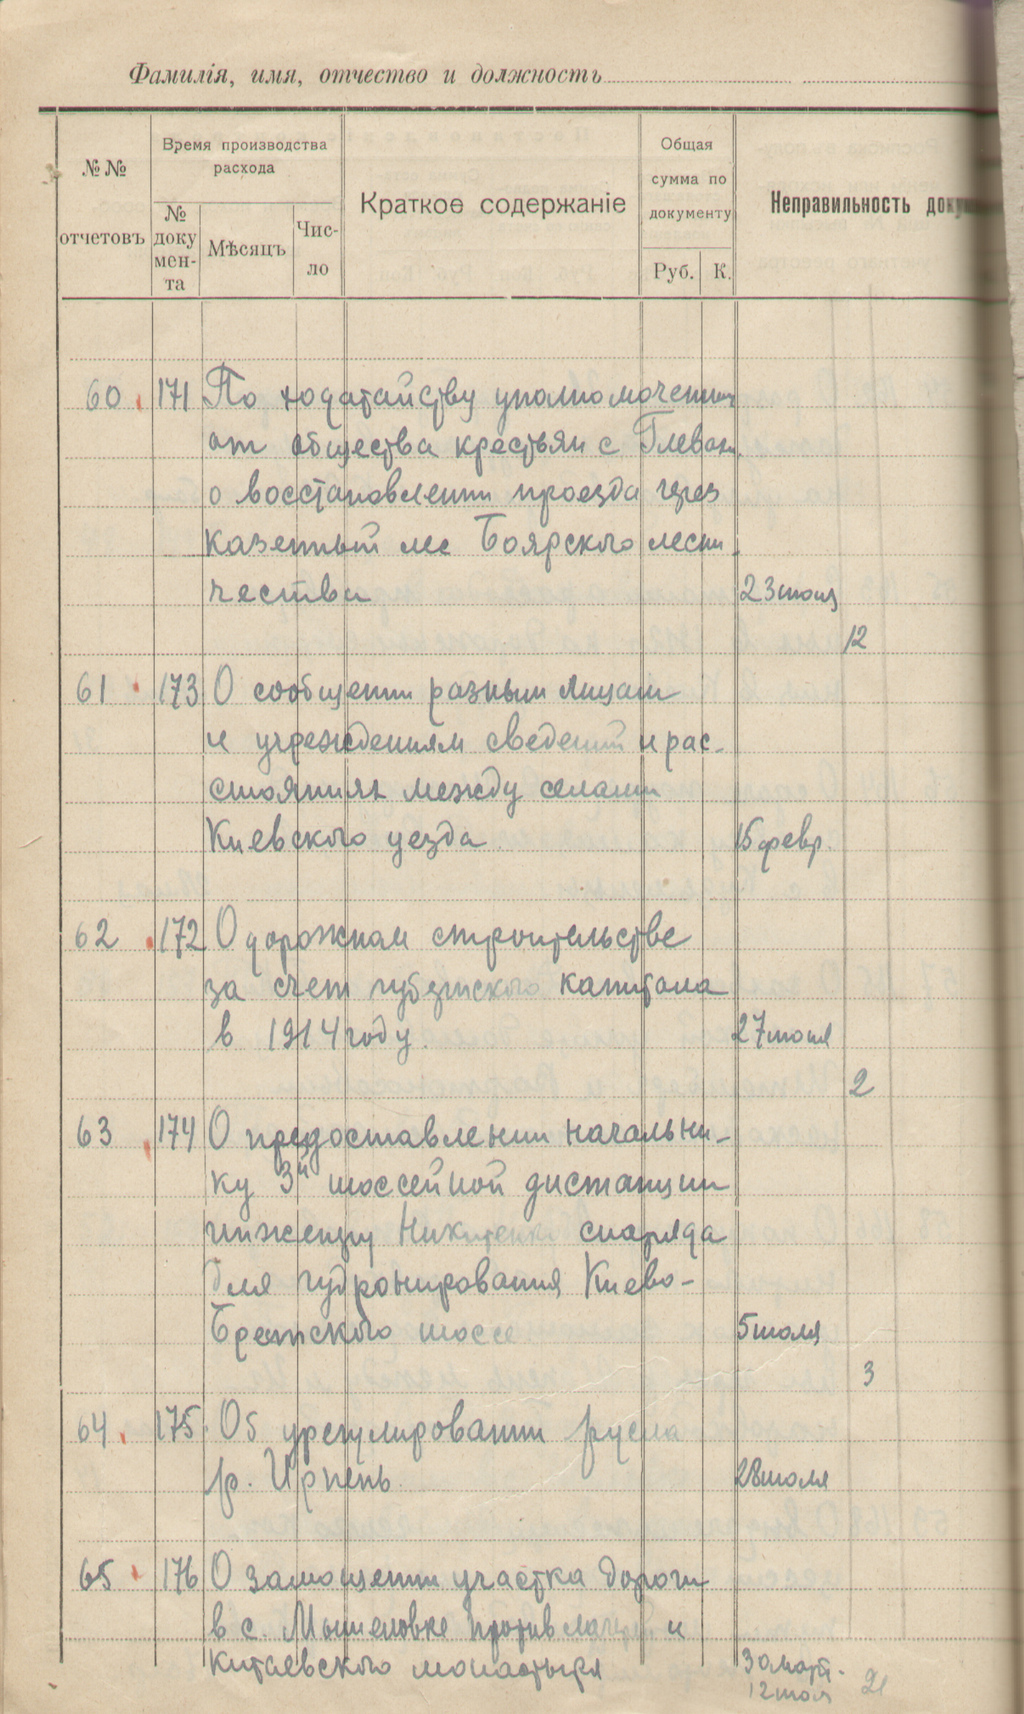 Фамилія, имя, отчество и должность
№№ отчетовъ
Время производства расхода
№ доку мен- та
Мѣсяцъ
Чис- ло
Краткое содержаніе
Общая сумма по документу
Руб. К.
Неправильность
60 171 По ходатайству уполномоченных
от общества крестьян с Глевахи
о восстановлении проезда через
казенный лес Боярского лесни
чества 23 июня
12
61 173 О сообщении разным лицам
и учреждениям сведений и рас-
стояниях между селами
Киевского уезда 15 февр.
62 172 О дорожном строительстве
за счет губернского капитала
в 1914 году. 27 июня
2
63 174 О предоставлении начальни-
ку 3й шоссейной дистанции
инженеру Никитенко снаряда
для гудронирования Киево-
Брестского шоссе 5 июля
3
64 175 Об урегулировании русла
р. Ирпень 28 июля
65 176 О замощении участка дороги
в с. Мышеловке против лагеря и
китаевского монастыря 30 март.
12 июл 21